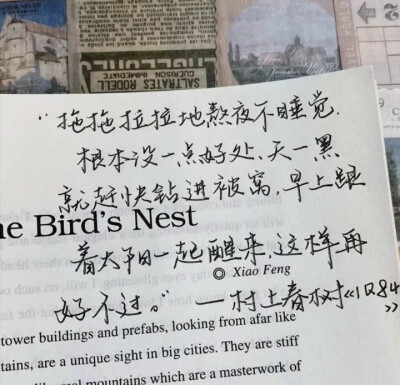 SALTRATES RODELL
GUERISON IMMEDIATE
2
“拖拖拉拉地熬夜不睡觉.
根本没一点好处、天一黑
就赶快钻进被窝,早上跟
e Bird's Nest
着太阳一起醒来,这样再
Xiao Feng
好不过。” ——村上春树《1Q84》
tower buildings and prefabs, looking from afar like
tains, are a unique sight in big cities. They are stiff
mountains which are a masterwork of